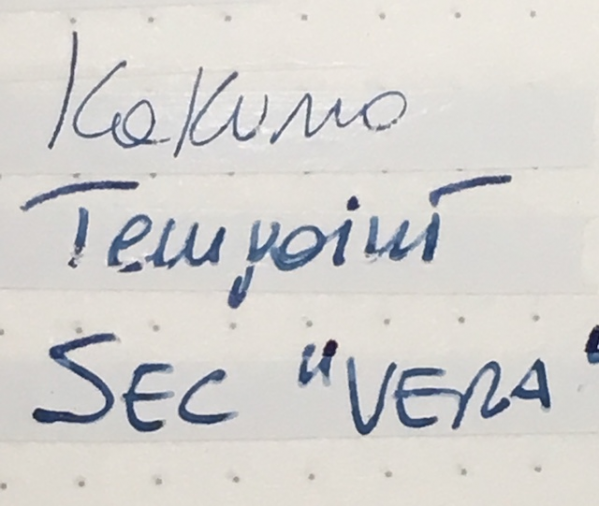 Kakuno
Tempoint
SEC "VERA"